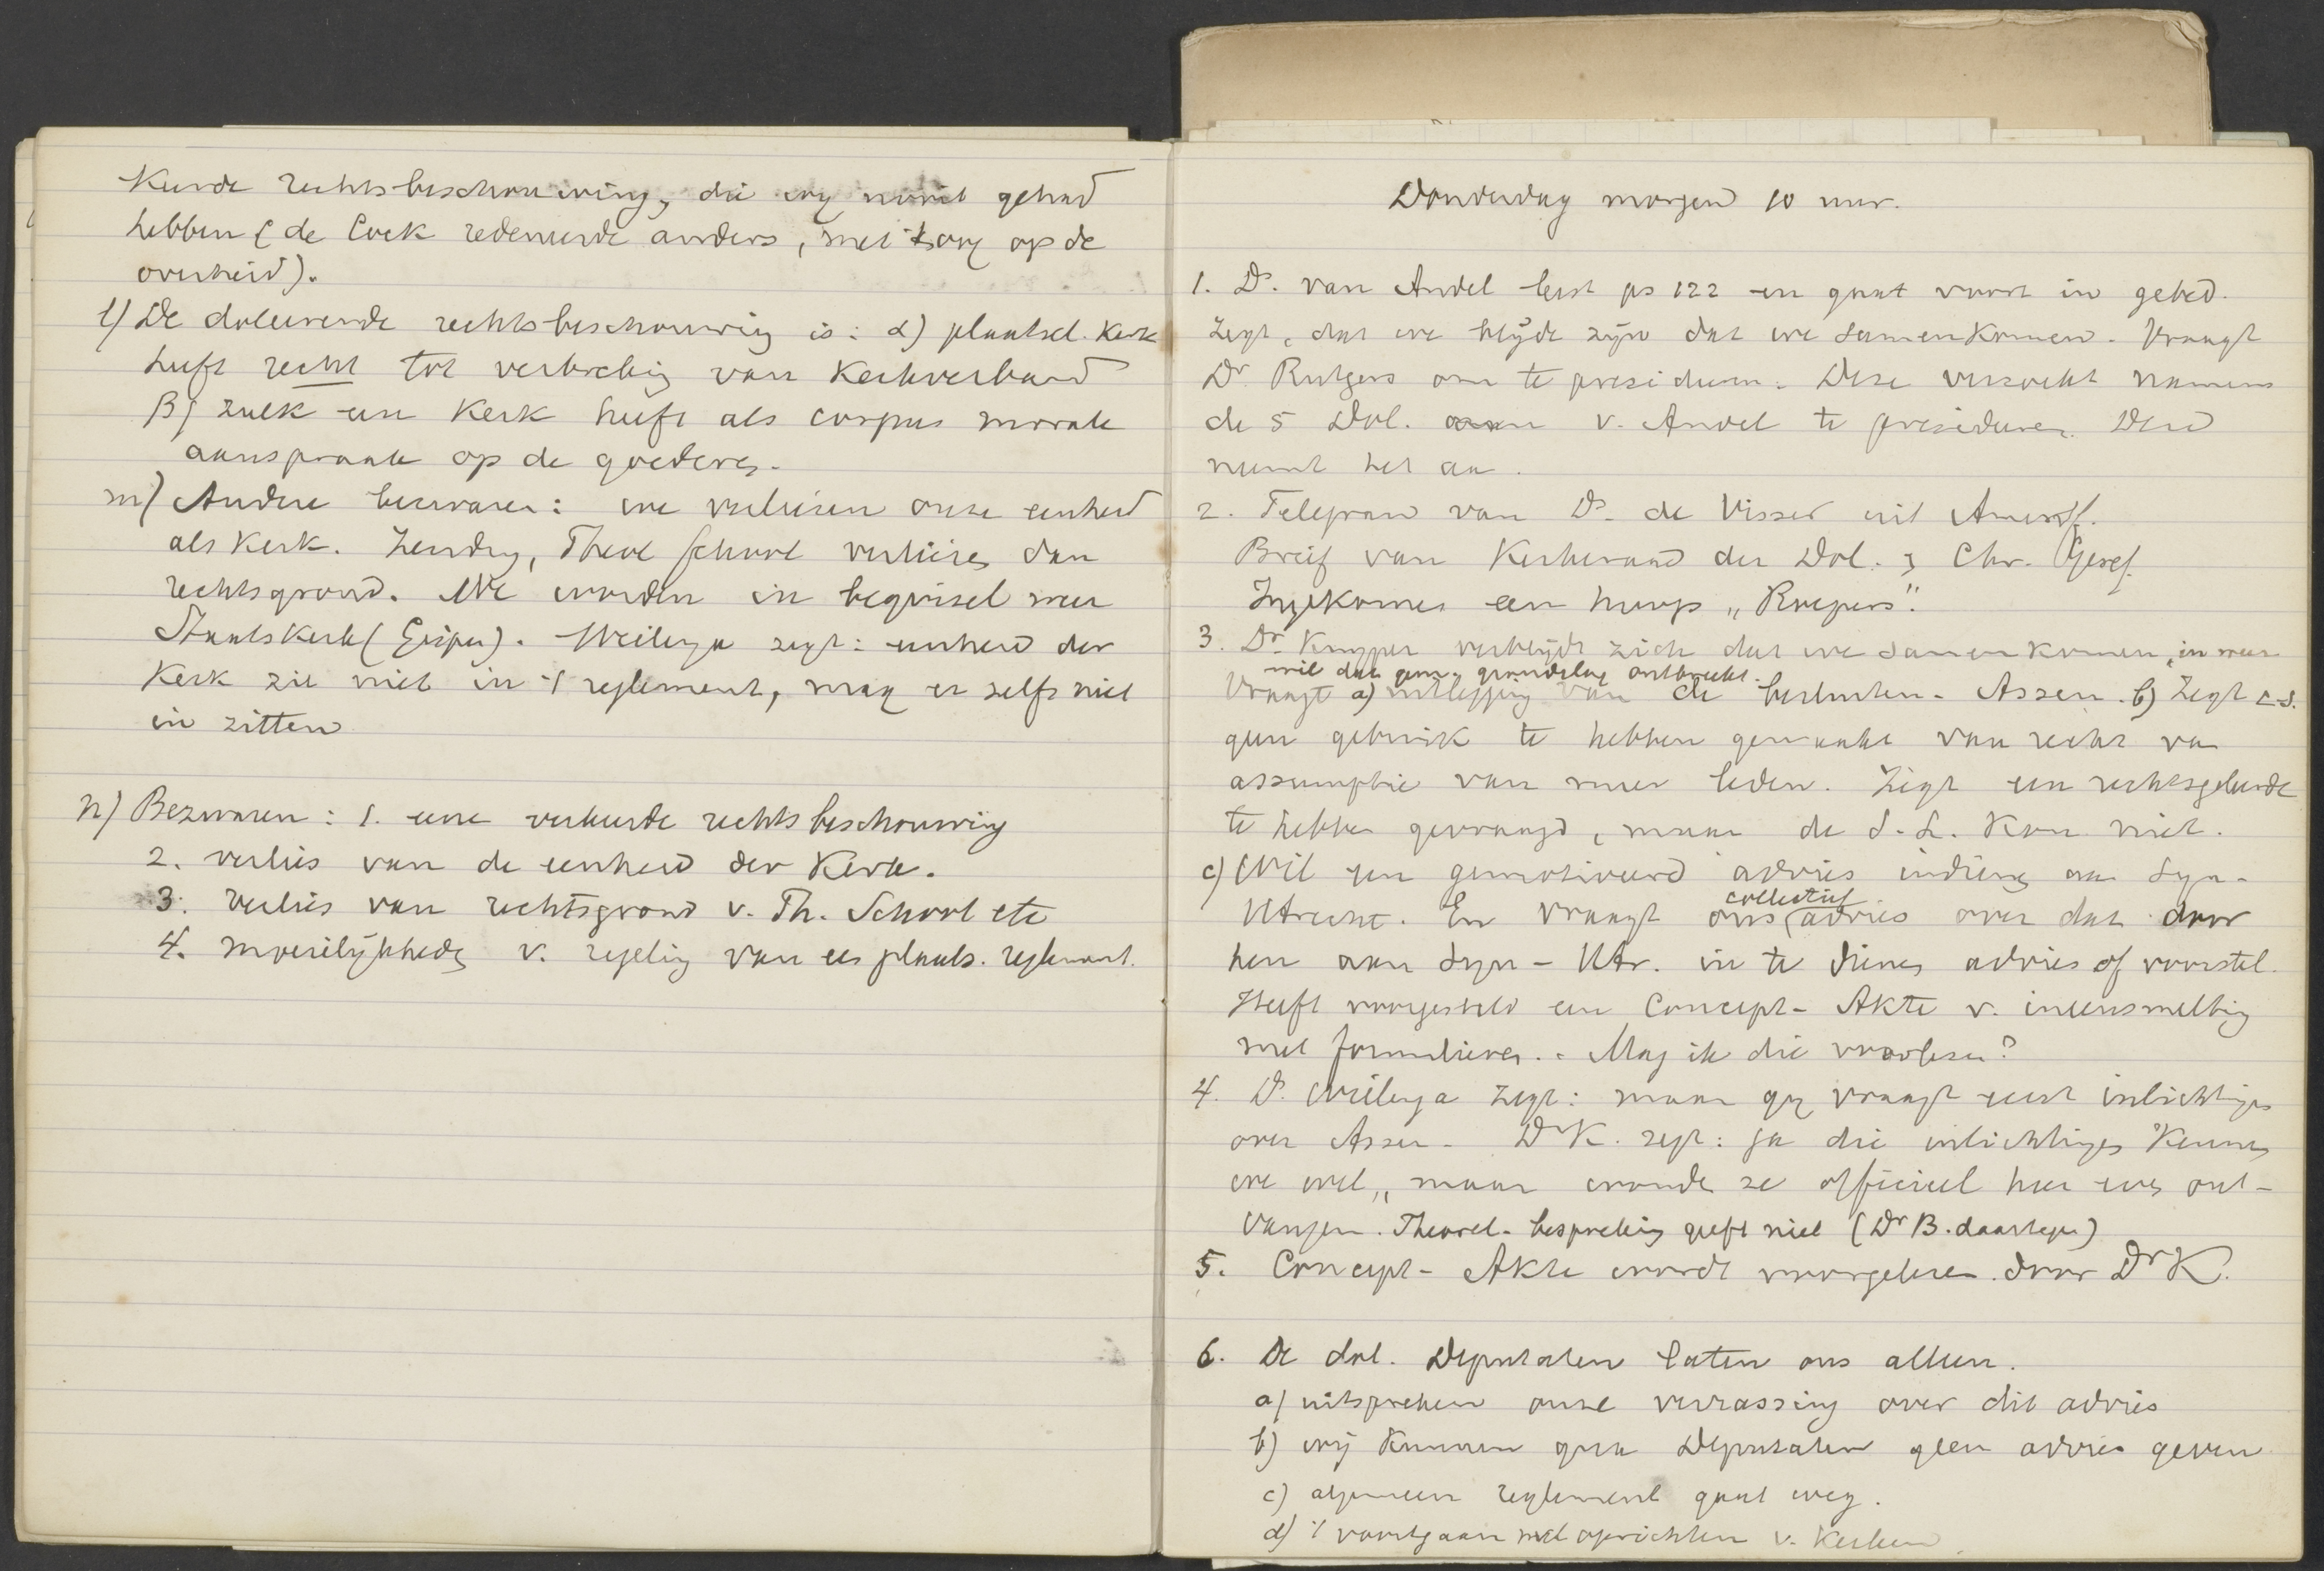 keerde rechtsbeschouwing, die wij nooit gehad
hebben (de Cock redeneerde anders, met 't oog op de
overheid).
l) De doleerende rechtsbeschouwing is: α) plaatsel. Kerk
heeft recht tot verbreking van Kerkverband
β) zulk een Kerk heeft als corpus morale
aanspraak op de goederen.
m) Andere bezwaren: we verliezen onze eenheid
als Kerk. Zending, Theol School verliezen dan
rechtsgrond. We worden in beginsel weer
Staatskerk (Gispen). Wielenga zegt: eenheid der
Kerk zit niet in 't reglement, mag er zelfs niet
in zitten
n) Bezwaren: 1. eene verkeerde rechtsbeschouwing
2. verlies van de eenheid der Kerk.
3. verlies van rechtsgrond v. Th. School etc
4. moeilijkheden v. regeling van een plaats. reglement.
Donderdag morgen 10 uur.
1. Ds. van Andel leest ps 122 en gaat voor in gebed.
Zegt, dat we blijde zijn dat we samenkomen. Vraagt
Dr. Rutgers om te presideeren. Deze verzoekt namens
de 5 Dol. v. Andel te presideeren. Deze
neemt het aan.
2. Telegram van Ds. de Visser uit Amersf.
Brief van Kerkeraad der Dol. & Chr. Geref.
Ingekomen een hoop "Roepers".
3. Dr. Kuyper verblijdt zich dat we samenkomen, in weer-
wil dat gem. grondslag ontbreekt.
Vraagt a) uitlegging van de besluiten - Assen. b) Zegt c.s.
geen gebruik te hebben gemaakt van recht van
assumptie van meer leden. Zegt een rechtsgeleerde
te hebben gevraagd, maar de S. L. kon niet.
c) Wil een gemotiveerd advies indienen aan Syn-
Utrecht. En vraagt ons collectief advies over dat door
hen aan Syn - Utr. in te dienen advies of voorstel.
Heeft voorgesteld een Concept - Akte v. ineensmelting
met formulieren. - Mag ik die voorlezen?
4. Ds. Wielenga zegt: maar gij vraagt eerst inlichtingen
over Assen - Dr K. zegt: ja die inlichtingen kennen
we wel, maar wenschen ze officieel hier eens ont-
vangen. Theoret. bespreking geeft niet (Dr B. daartegen)
5. Concept - Akte wordt voorgelezen door Dr K.
6. De dol. Deputaten laten ons alleen.
a) uitspreken onze verrassing over dit advies
b) wij kunnen qua Deputaten geen advies geven
c) algemeen reglement gaat weg.
d) 't voortgaan met oprichten v. Kerken.